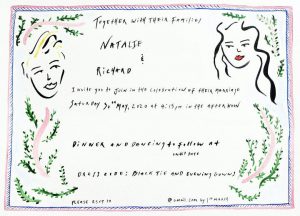 TOGETHER WITH THEIR FAMILIES
NATALIE
&
RICHARD
INVITE YOU TO JOIN IN THE CELEBRATION OF THEIR MARRIAGE
SATURDAY 30TH MAY, 2020 AT 4:15PM IN THE AFTERNOON
DINNER AND DANCING TO FOLLOW AT
DRESS CODE: BLACK TIE AND EVENING GOWNS
PLEASE RSVP TO